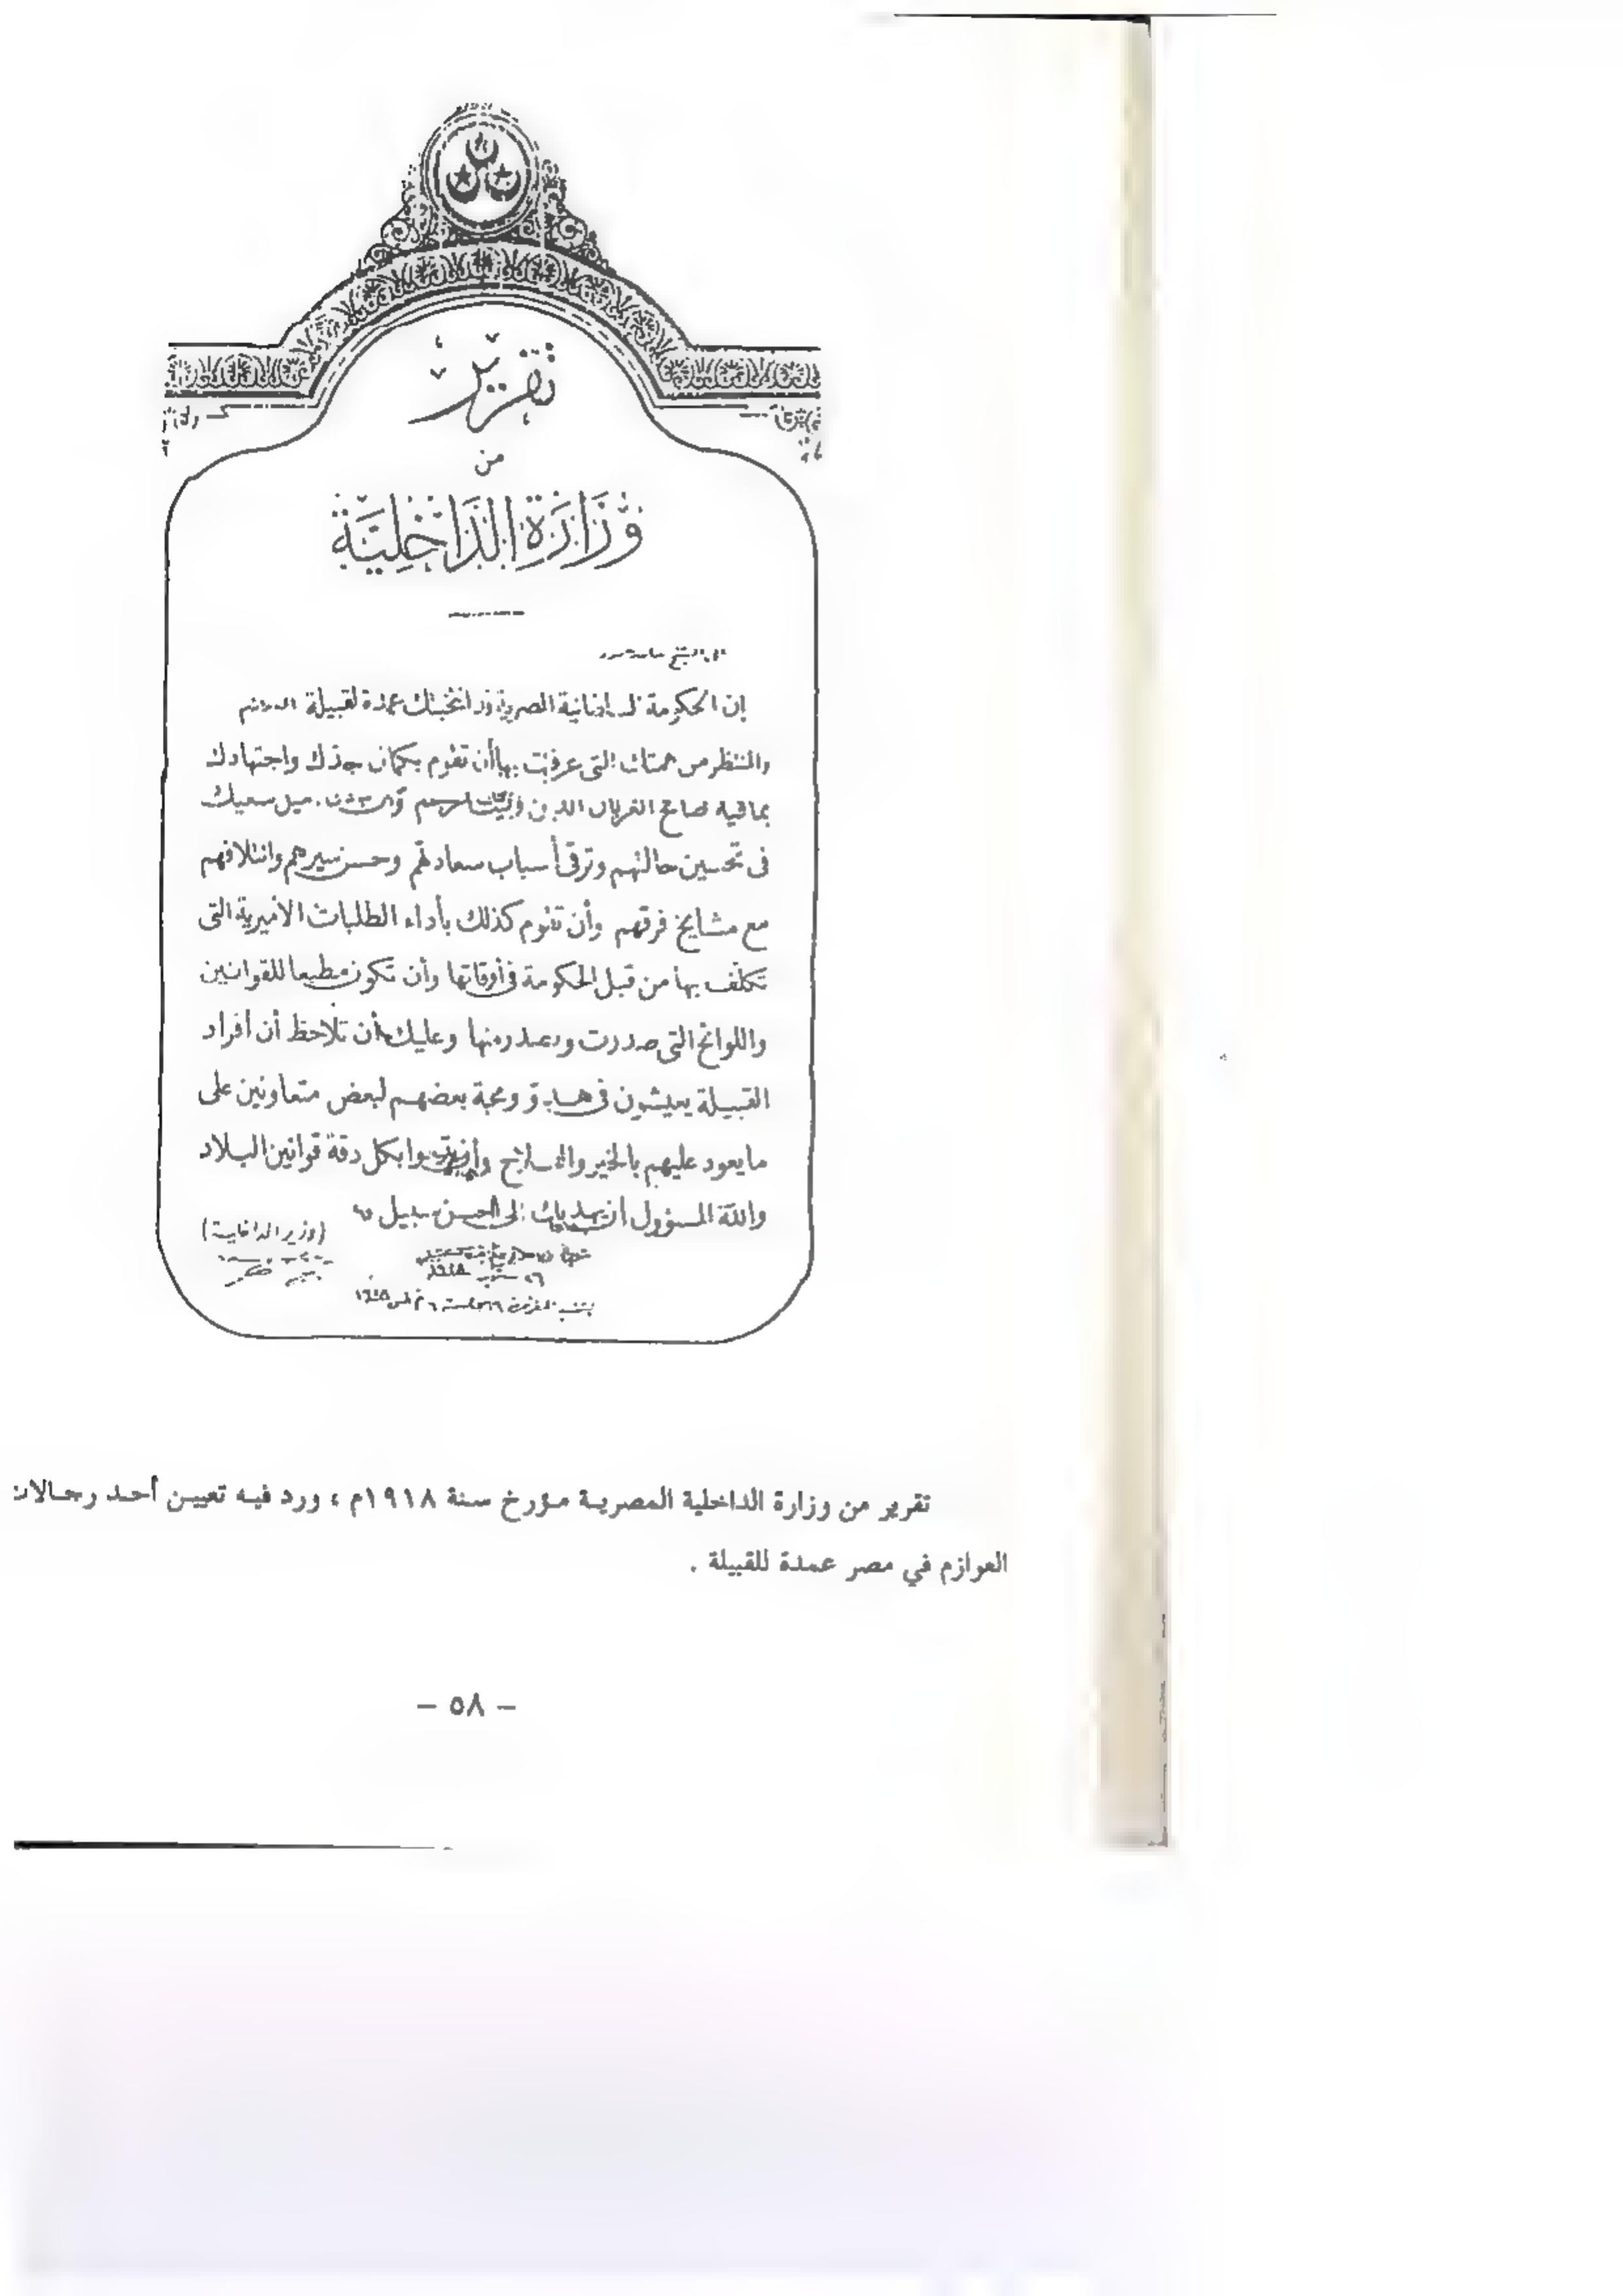 تقرير
من
وزارة الداخلية
الى الشيخ
إن الحكومة السلطانية المصرية قد انتخبتك عمدة لقبيلة العوازم
والمنتظر من همتك التى عرفت بها أن تقوم بكمال جدك واجتهادك
بما فيه صالح العربان الذين سعيك
فى تحسين حالتهم وترقى أسباب سعادتهم وحسن سيرهم وائتلافهم
مع مشايخ فرقهم وأن تقوم كذلك بأداء الطلبات الاميرية التى
تكلف بها من قبل الحكومة فى أوقاتها وأن تكون مطيعا للقوانين
واللوائح التى صدرت وتصدر منها وعليك أن تلاحظ أن أفراد
القبيلة يعيشون فى هدو ومحبة بعضهم لبعض متعاونين على
ما يعود عليهم بالخير والفلاح وأن يتبعوا بكل دقة قوانين البلاد
والله المسؤول أن يهديك الى أحسن سبيل
(وزير الداخلية)
تقرير من وزارة الداخلية المصرية مؤرخ سنة ١٩١٨م ، ورد فيه تعيين أحد رجالات
العوازم في مصر عمدة للقبيلة .
– ٥٨ –